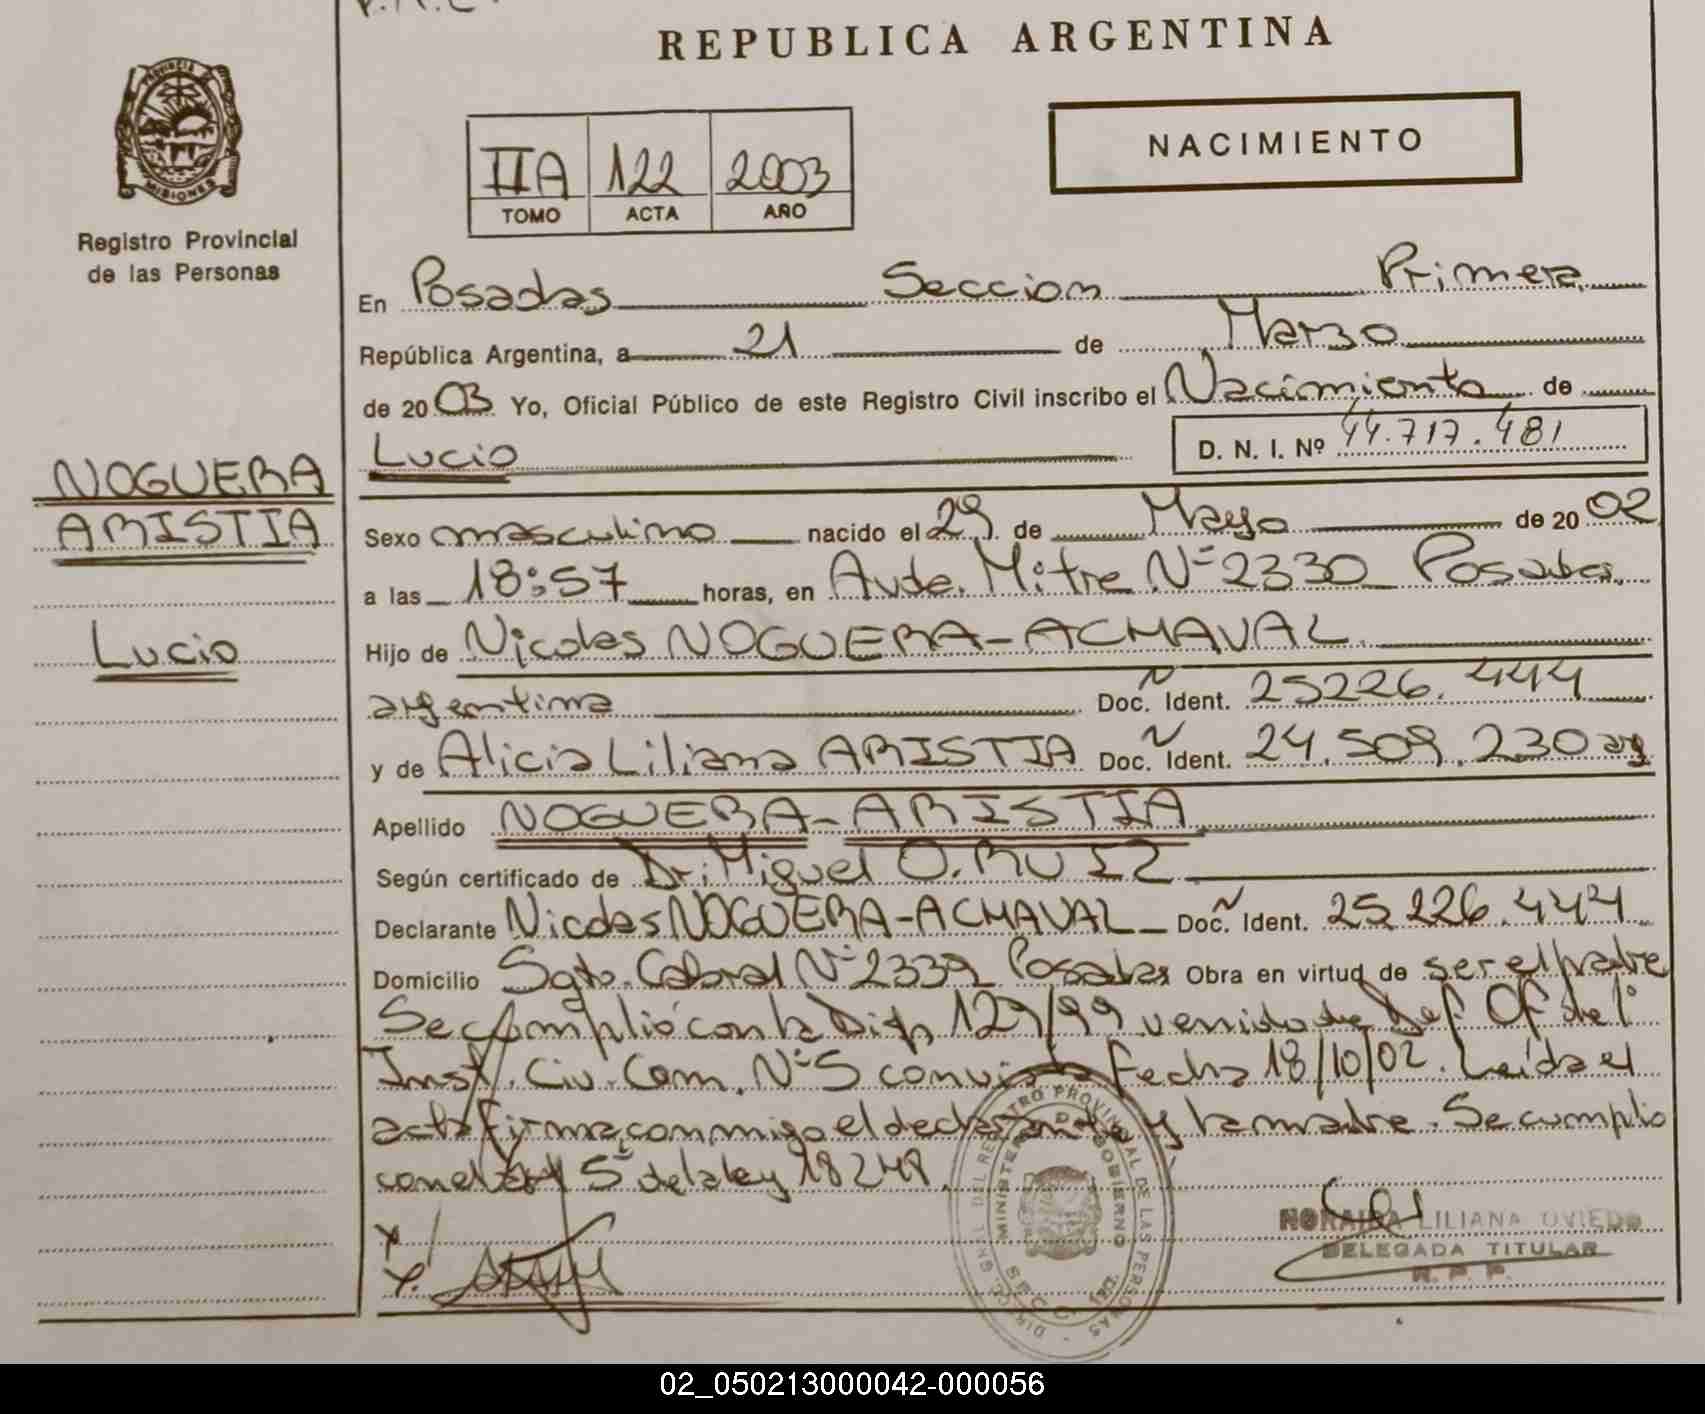 REPUBLICA ARGENTINA
PROVINCIA DE
MISIONES
Registro Provincial
de las Personas
IIA 122 2003
TOMO ACTA AÑO
NACIMIENTO
En Posadas Seccion Primera
República Argentina, a 21 de Marzo
de 2003 Yo, Oficial Público de este Registro Civil inscribo el Nacimiento de
Lucio D. N. I. Nº 44.717.481
NOGUERA
ARISTIA
Lucio
Sexo masculino nacido el 29 de Mayo de 2002
a las 18:57 horas, en Avda. Mitre Nº 2330 Posadas
Hijo de Nicolas NOGUERA-ACHAVAL
argentina Doc. Ident. 25226.444
y de Alicia Liliana ARISTIA Doc. Ident. 24.509.230 arg
Apellido NOGUERA-ARISTIA
Según certificado de Dr. Miguel O. RUIZ
Declarante Nicolas NOGUERA-ACHAVAL Doc. Ident. 25.226.444
Domicilio Sgto. Cabral Nº 2339 Posadas Obra en virtud de ser el padre
Se cumplió con la Disp. 129/99 venido de Def. Of de 1º
Inst. Civ. Com. Nº 5 con vista Fecha 18/10/02. Leída el
acta firma conmigo el declarante y la madre. Se cumplio
con el art 5º de la ley 18248.
DIREC. GRAL. DEL REGISTRO PROVINCIAL DE LAS PERSONAS
MINISTERIO DE GOBIERNO
NORAIDA LILIANA OVIEDO
DELEGADA TITULAR
R. P. P.
02_050213000042-000056